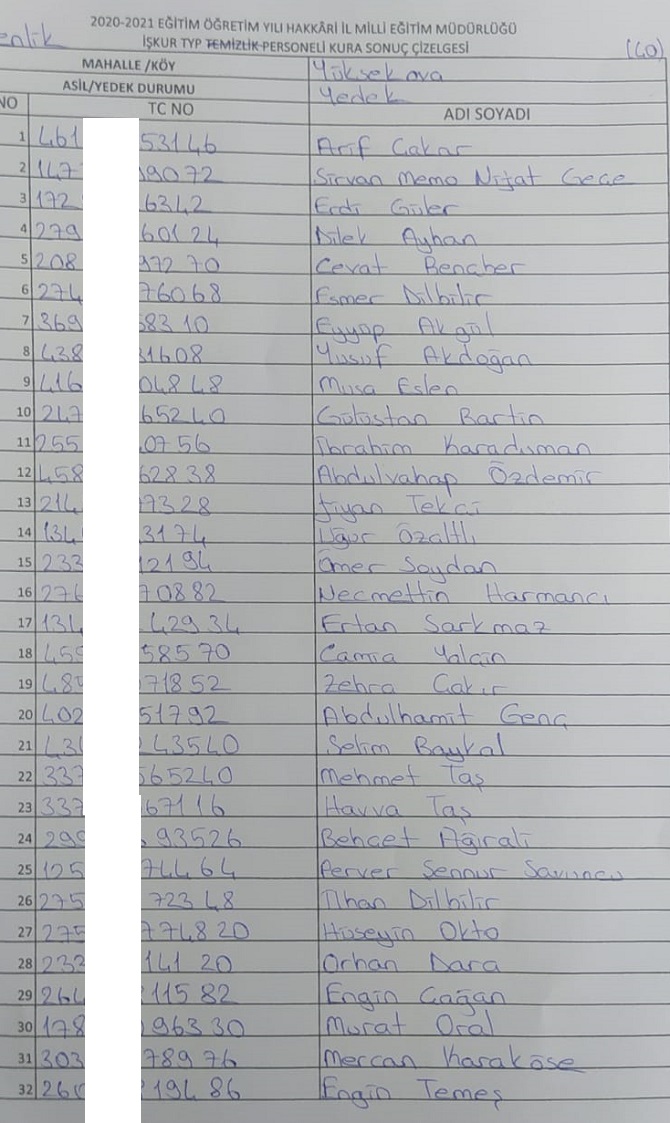 2020-2021 EĞİTİM ÖĞRETİM YILI HAKKÂRİ İL MİLLİ EĞİTİM MÜDÜRLÜĞÜ
enlik İŞKUR TYP TEMİZLİK PERSONELİ KURA SONUÇ ÇİZELGESİ (40)
MAHALLE /KÖY Yüksekova
ASİL/YEDEK DURUMU Yedek
NO TC NO ADI SOYADI
1 461 53146 Arif Çakar
2 147 9072 Sirvan Memo Nifat Geçe
3 172 6342 Erdi Güler
4 279 60124 Dilek Ayhan
5 208 97270 Cevat Bencher
6 274 76068 Esmer Dilbilir
7 369 58310 Eyyüp Akgül
8 438 31608 Yusuf Akdoğan
9 416 04848 Musa Eslen
10 247 65240 Gülüstan Bartin
11 255 0756 İbrahim Karaduman
12 458 62838 Abdulvahap Özdemir
13 214 7328 Jiyan Tekçi
14 134 3174 Uğur Özaltlı
15 233 12194 Ömer Soydan
16 276 70882 Necmettin Harmancı
17 134 42934 Ertan Sarkmaz
18 459 58570 Camia Yalçin
19 484 71852 Zehra Çakır
20 402 51792 Abdulhamit Genç
21 430 43540 Selim Baykal
22 337 565240 Mehmet Taş
23 337 67116 Havva Taş
24 299 93526 Behcet Ağirali
25 125 74464 Perver Sennur Savuncu
26 275 72348 İlhan Dilbilir
27 275 774820 Hüseyin Okto
28 233 14120 Orhan Dara
29 264 11582 Engin Çağan
30 178 96330 Murat Oral
31 303 78976 Mercan Karaköse
32 260 19486 Engin Temeş